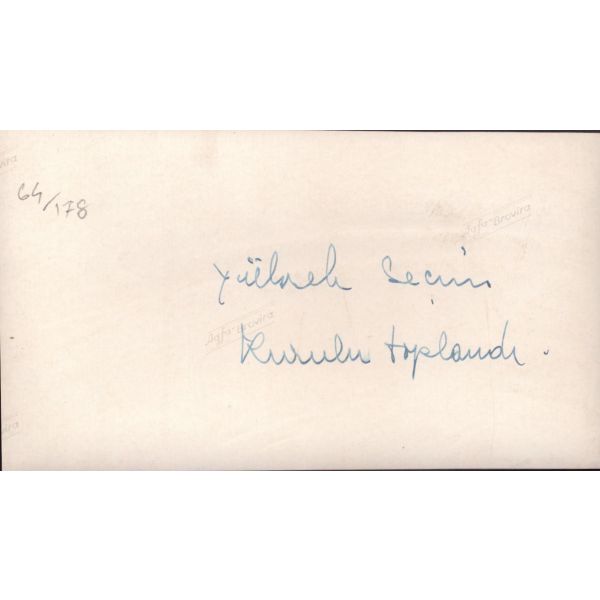 64/178
Agfa-Brovira
Yüksek Seçim
Agfa-Brovira
Kurulu toplandı.